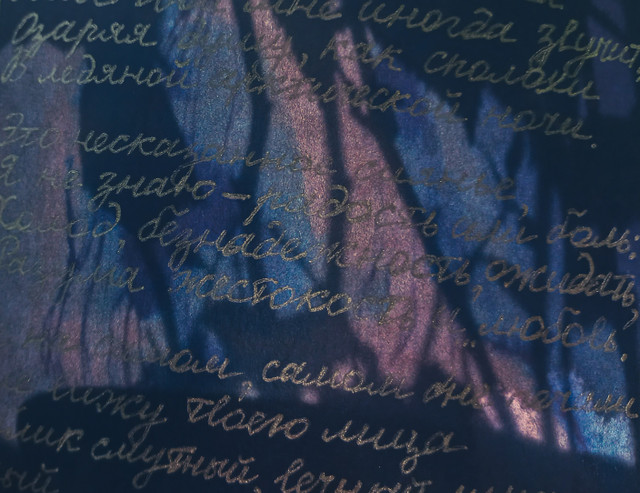 мне иногда звучат
Озаряя душу, как сполохи
В ледяной арктической ночи.
Это несказанное сиянье,
Я не знаю – радость или боль:
Холод, безнадежность, ожиданье,
Разума жестокость и... любовь.
самом
вижу твоего лица
лик смутный вечный